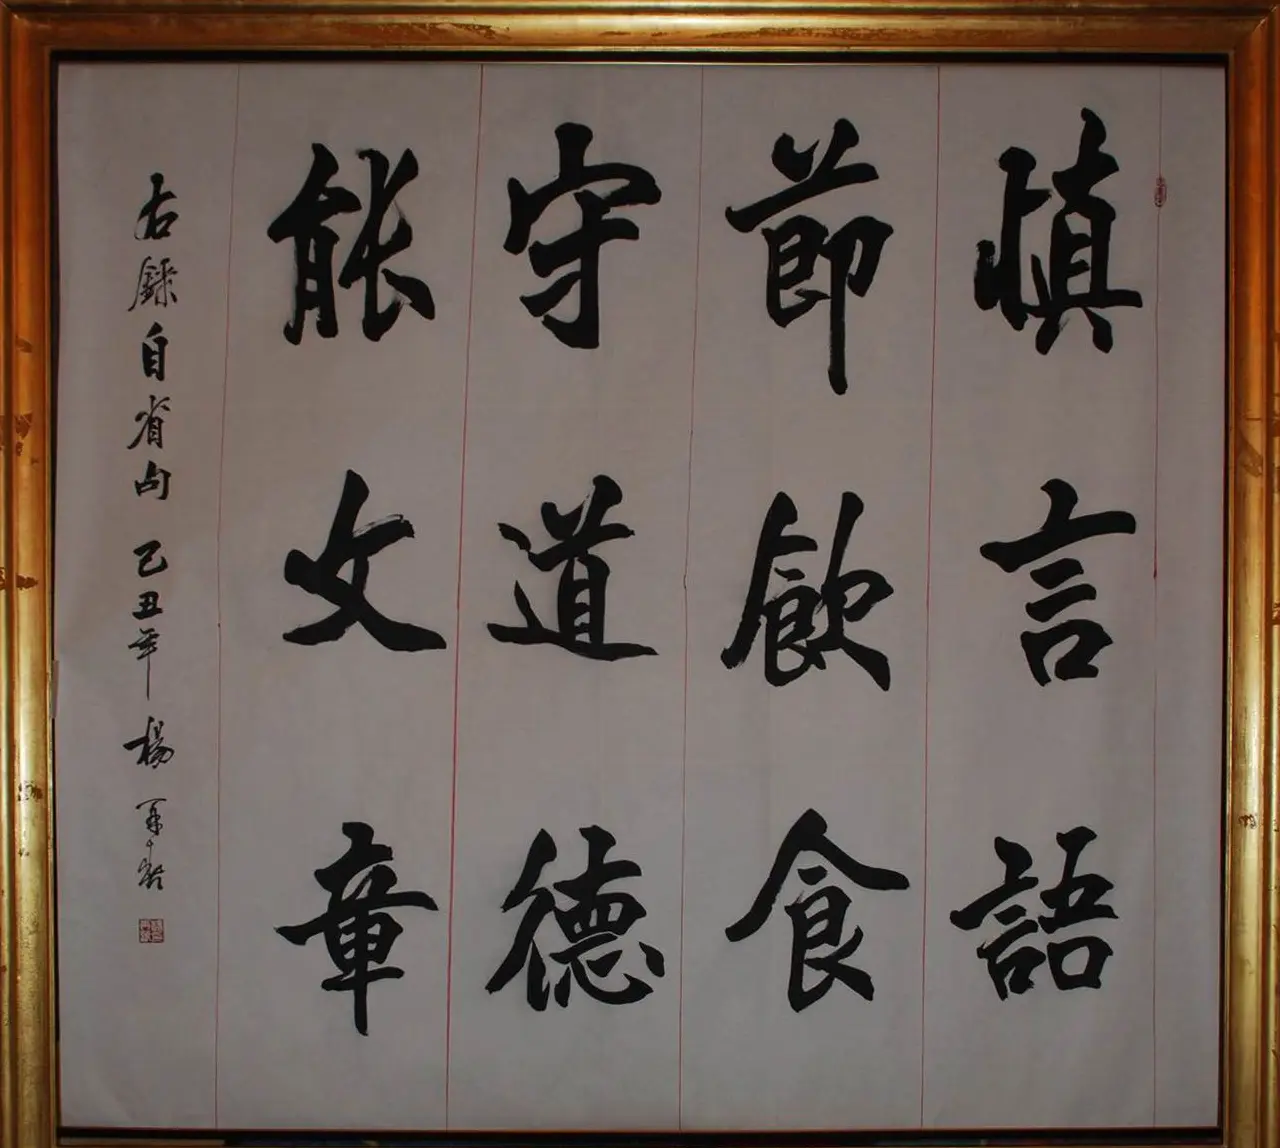 慎言語
節飲食
守道德
能文章
右錄自省句 己丑年 楊